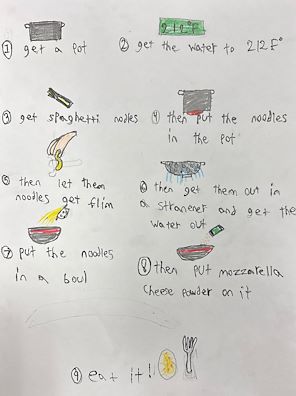 ① get a pot
② get the water to 212 F°
③ get spaghetti nodles
④ then put the noodles
in the pot
⑤ then let them
noodles get flim
⑥ then get them out in
a stranener and get the
water out
⑦ put the noodles
in a boul
⑧ then put mozzarella
cheese powder on it
⑨ eat it!